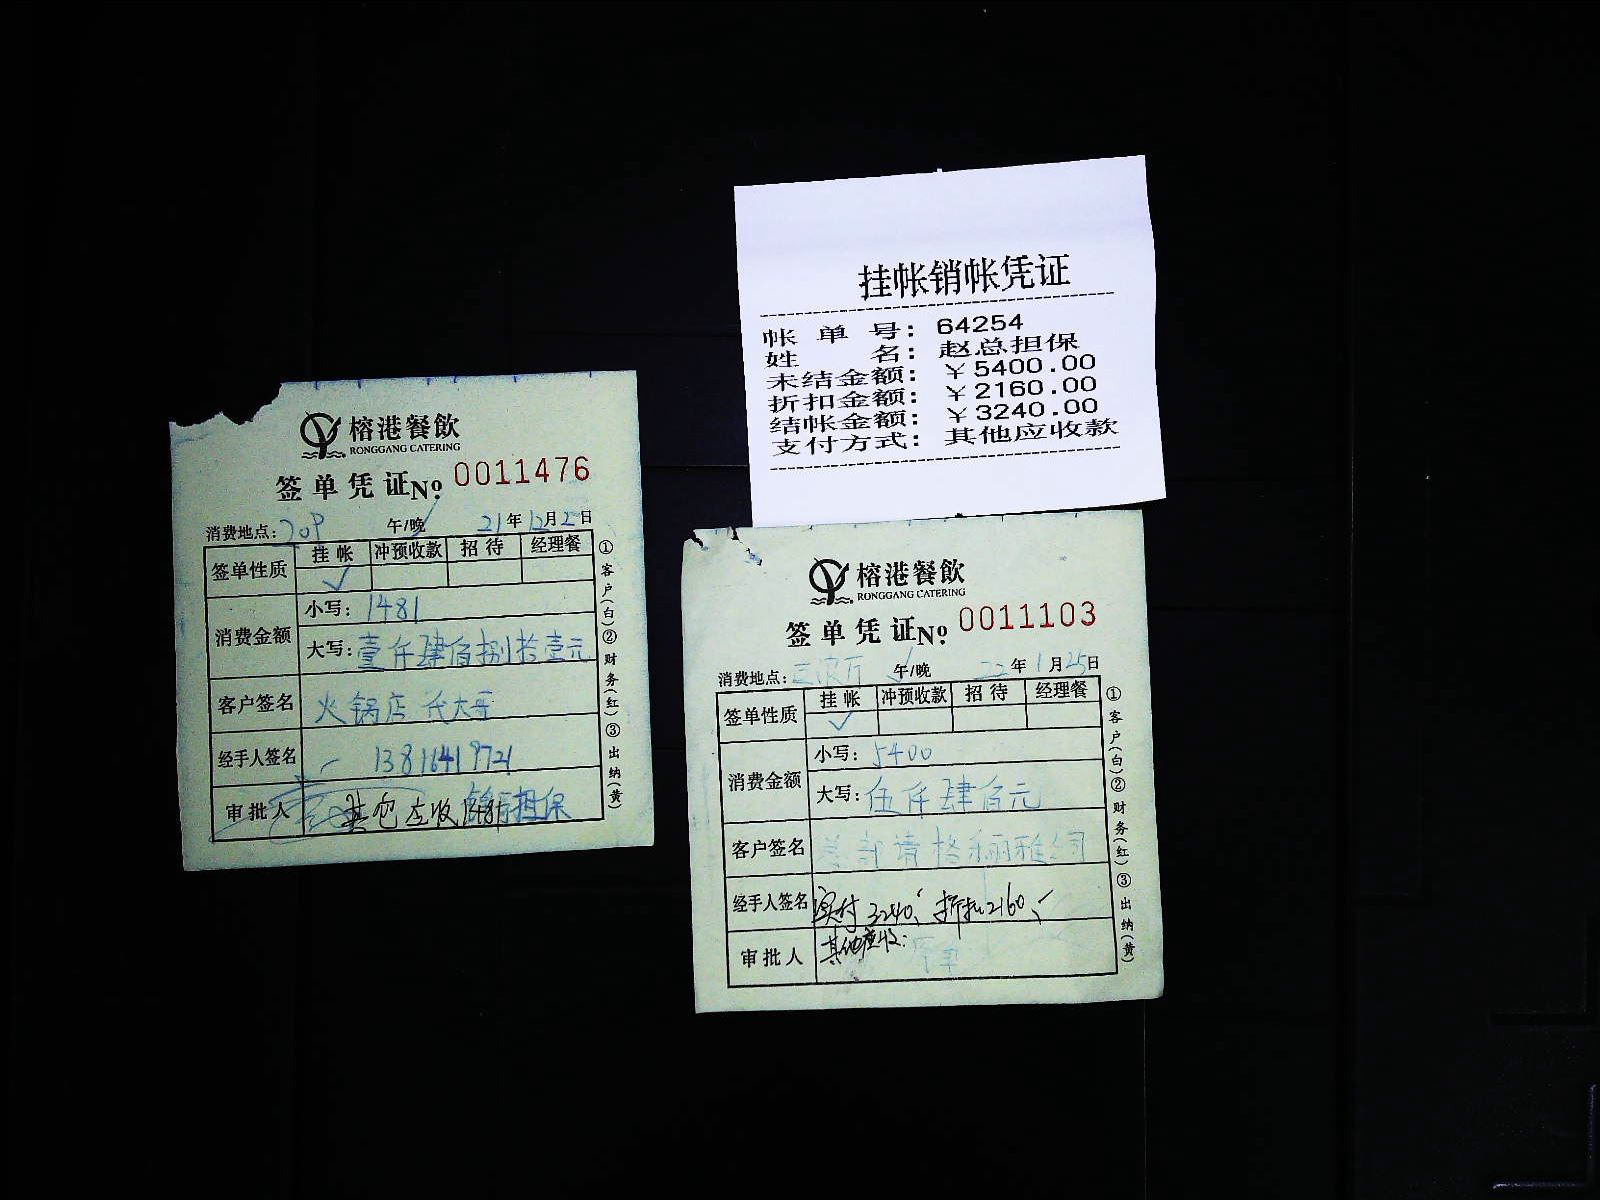 榕港餐飲
RONGGANG CATERING
签单凭证 No. 0011476
消费地点: 709 午/晚 21年12月2日
签单性质 挂帐 冲预收款 招待 经理餐
✓
消费金额 小写: 1481
大写: 壹仟肆佰捌拾壹元
客户签名 火锅店 大哥
经手人签名 13816419721
审批人 其它应收1481 担保
①客户(白)②财务(红)③出纳(黄)
挂帐销帐凭证
帐单号: 64254
姓名: 赵总担保
未结金额: ￥5400.00
折扣金额: ￥2160.00
结帐金额: ￥3240.00
支付方式: 其他应收款
榕港餐飲
RONGGANG CATERING
签单凭证 No. 0011103
消费地点: 午/晚 22年1月25日
签单性质 挂帐 冲预收款 招待 经理餐
✓
消费金额 小写: 5400
大写: 伍仟肆佰元
客户签名 总部请格丽雅公司
经手人签名 实付3240, 折扣2160,
审批人 其他应收:
①客户(白)②财务(红)③出纳(黄)